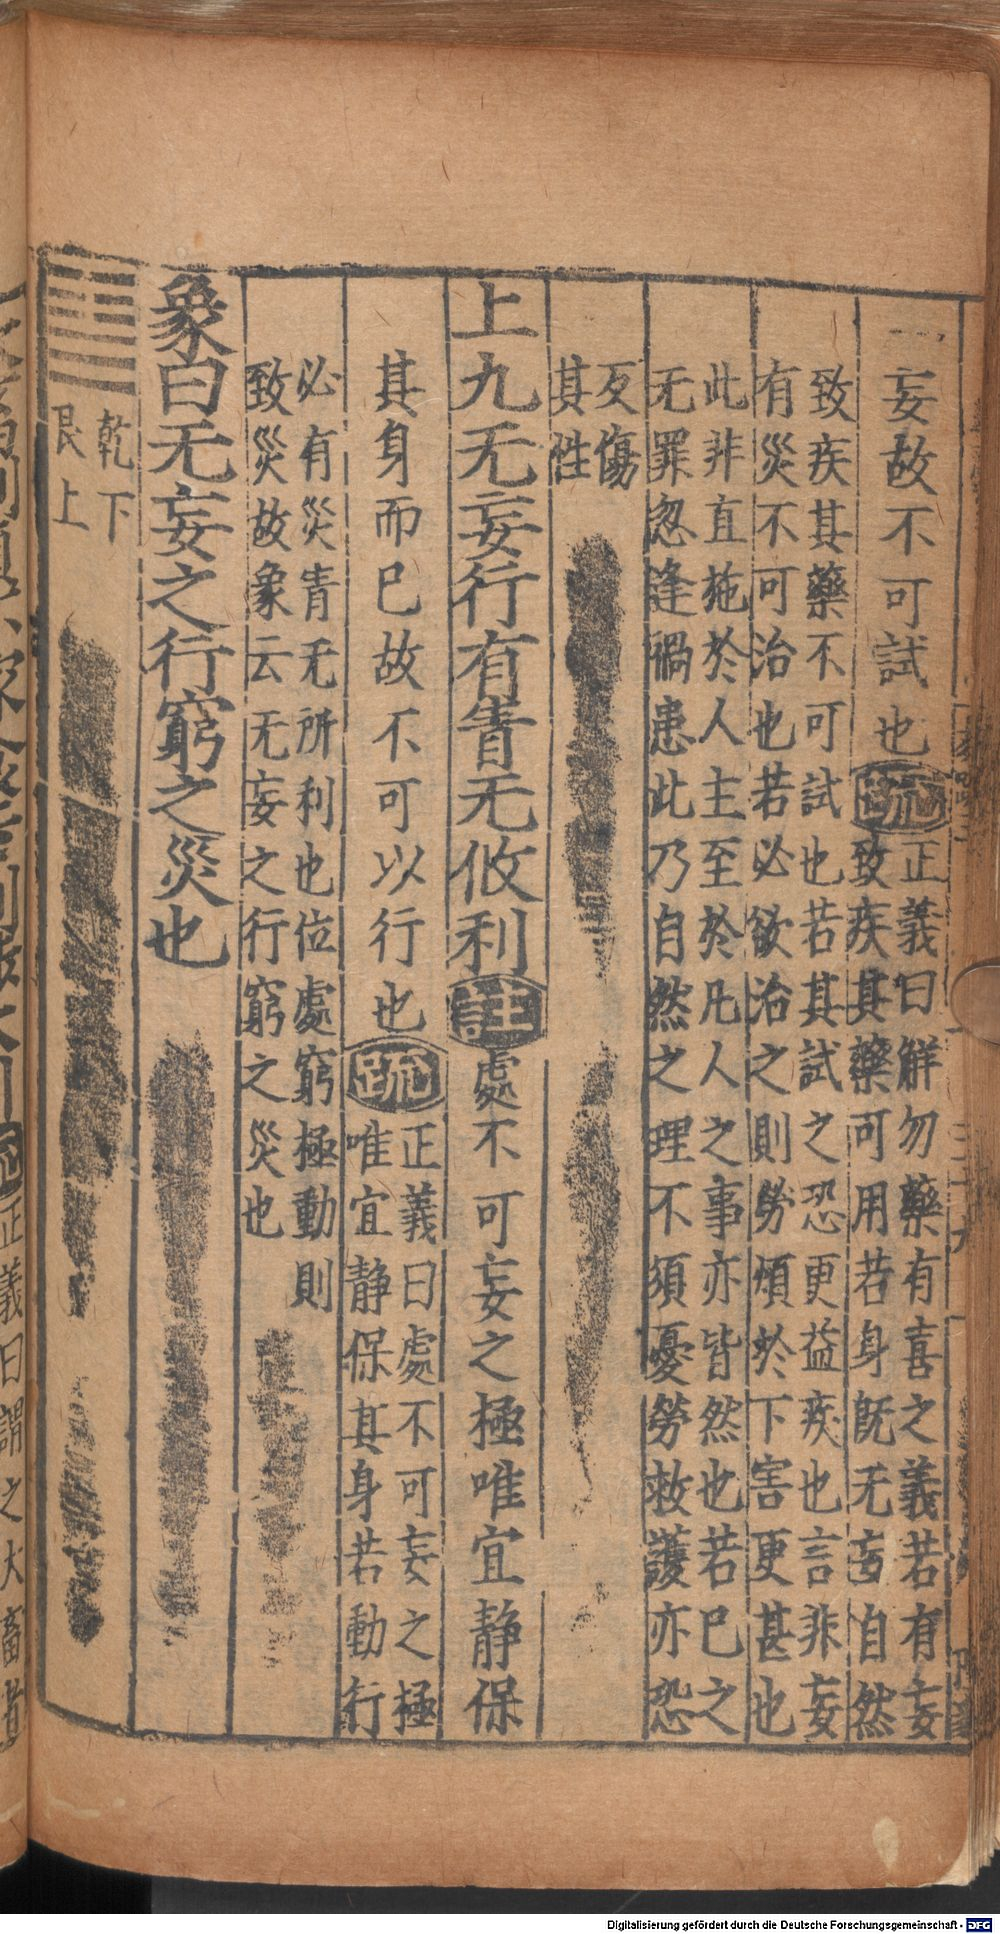 妄故不可試也疏正義曰解勿藥有喜之義若有妄
致疾其藥可用若身旣无妄自然
致疾其藥不可試也若其試之恐更益疾也言非妄
有災不可治也若必欲治之則勞煩於下害更甚也
此非直施於人主至於凡人之事亦皆然也若巳之
无罪忽逢禍患此乃自然之理不須憂勞救護亦恐
反傷
其性
上九无妄行有眚无攸利註處不可妄之極唯宜靜保
其身而巳故不可以行也疏正義曰處不可妄之極
唯宜靜保其身若動行
必有災眚无所利也位處窮極動則
致災故象云无妄之行窮之災也
象曰无妄之行窮之災也
乾下
艮上
正義曰謂之大畜者
Digitalisierung gefördert durch die Deutsche Forschungsgemeinschaft - DFG